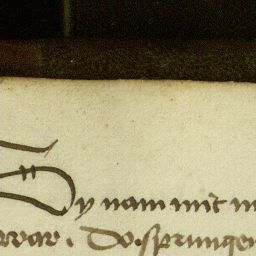 Sy nam mit
war. Do sprungen